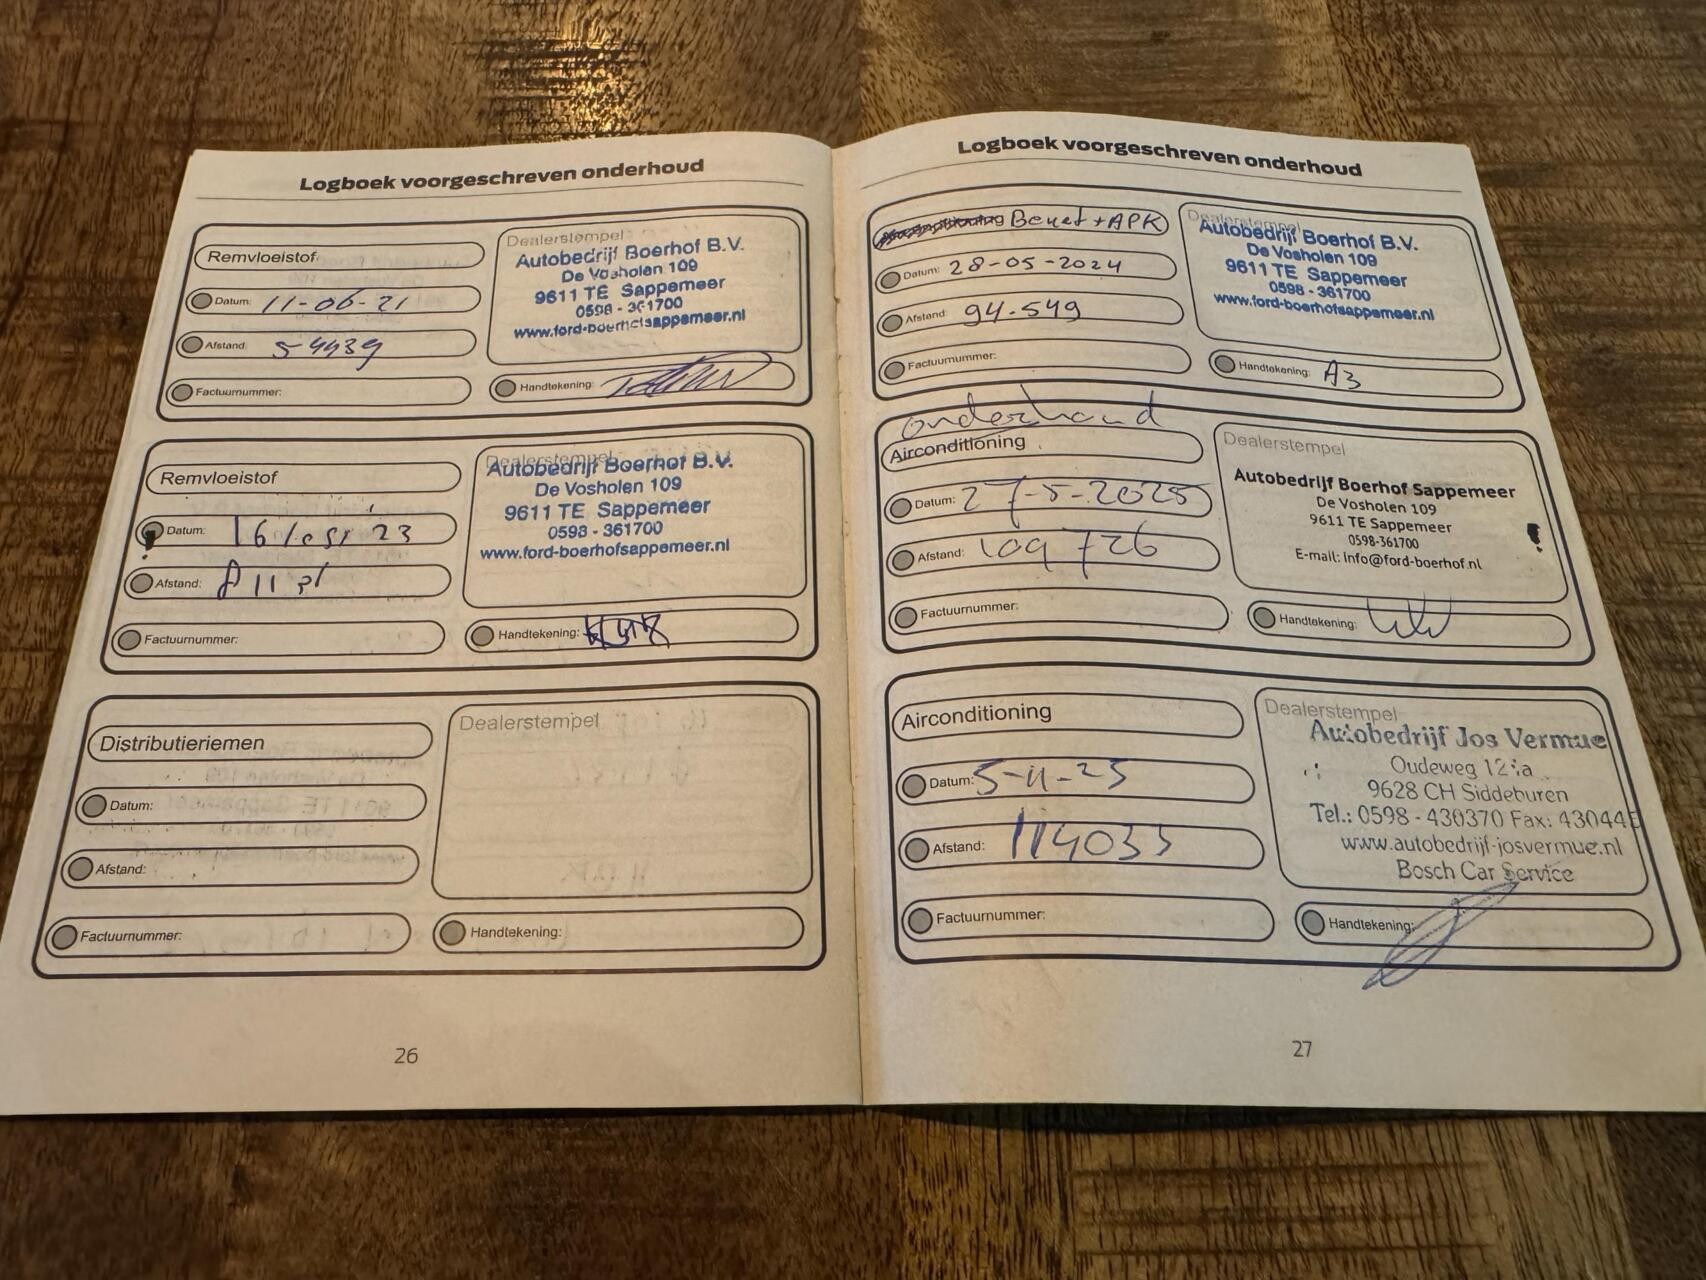 Logboek voorgeschreven onderhoud
Remvloeistof
Datum: 11-06-21
Afstand: 54439
Factuurnummer:
Dealerstempel
Autobedrijf Boerhof B.V.
De Vosholen 109
9611 TE Sappemeer
0598 - 361700
www.ford-boerhofsappemeer.nl
Handtekening:
Remvloeistof
Datum: 16 23
Afstand:
Factuurnummer:
Dealerstempel
Autobedrijf Boerhof B.V.
De Vosholen 109
9611 TE Sappemeer
0598 - 361700
www.ford-boerhofsappemeer.nl
Handtekening:
Distributieriemen
Datum:
Afstand:
Factuurnummer:
Dealerstempel
Handtekening:
26
Logboek voorgeschreven onderhoud
Airconditioning Beurt + APK
Datum: 28-05-2024
Afstand: 94.549
Factuurnummer:
Dealerstempel
Autobedrijf Boerhof B.V.
De Vosholen 109
9611 TE Sappemeer
0598 - 361700
www.ford-boerhofsappemeer.nl
Handtekening:
onderhoud
Airconditioning
Datum: 27-5-2025
Afstand: 109726
Factuurnummer:
Dealerstempel
Autobedrijf Boerhof Sappemeer
De Vosholen 109
9611 TE Sappemeer
0598-361700
E-mail: info@ford-boerhof.nl
Handtekening:
Airconditioning
Datum: 5-11-25
Afstand: 114033
Factuurnummer:
Dealerstempel
Autobedrijf Jos Vermue
Oudeweg
9628 CH Siddeburen
Tel.: 0598 - 430370 Fax:
www.autobedrijf-josvermue.nl
Bosch Car Service
Handtekening:
27